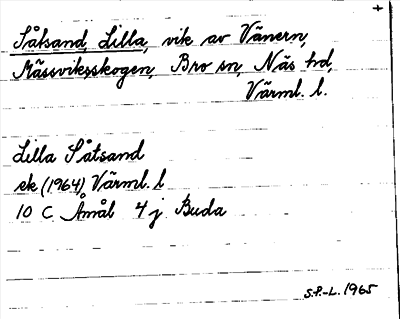 +
Såtsand, Lilla, vik av Vänern,
Mässviksskogen, Bro sn, Näs hd,
Värml. l.
Lilla Såtsand
ek (1964) Värml. l
10 C Åmål 4 j Buda
S.P.-L. 1965